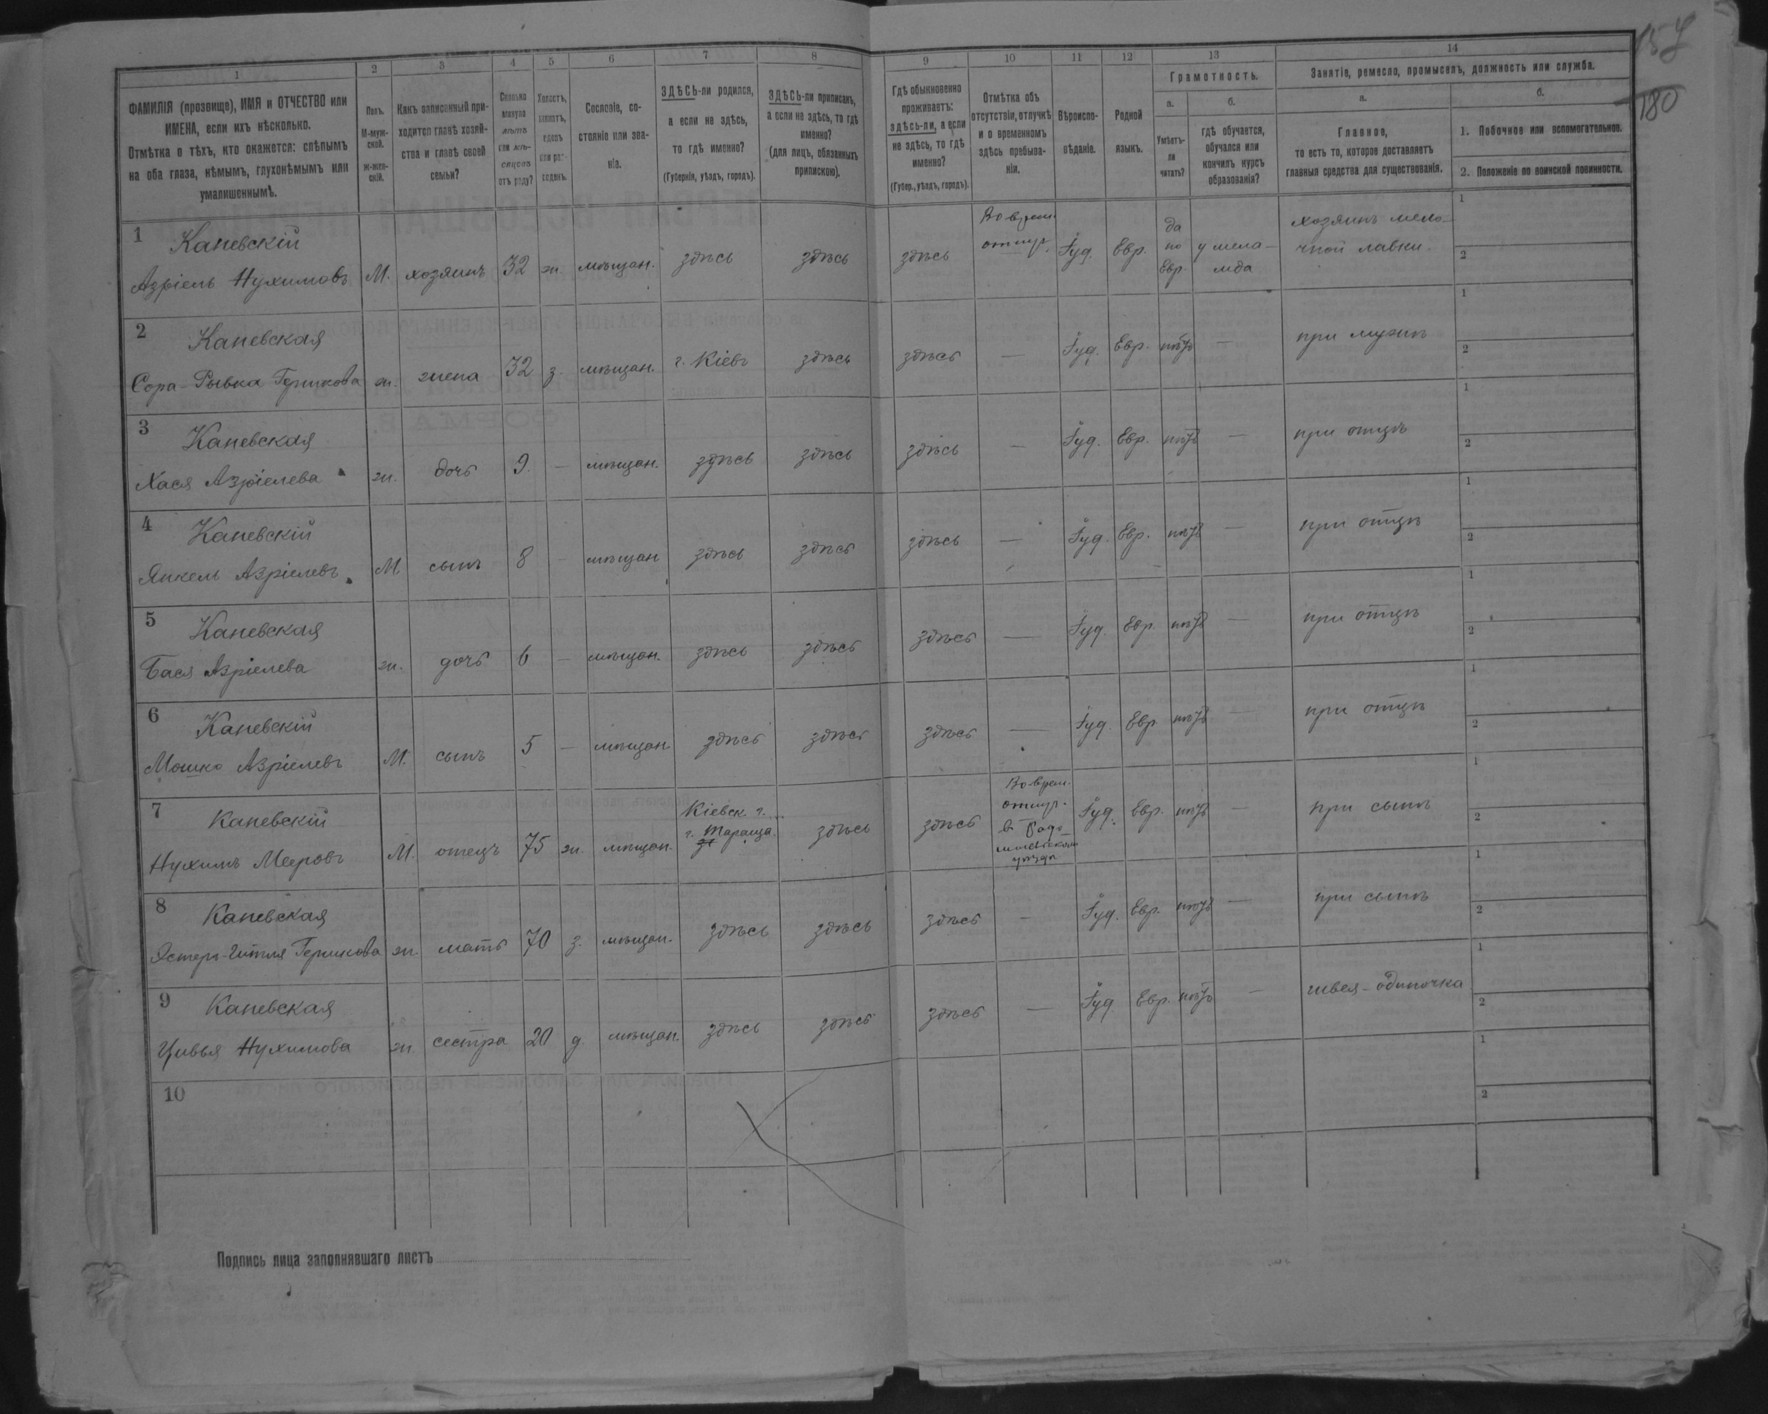 157
180
1 2 3 4 5 6 7 8 9 10 11 12 13 14
ФАМИЛІЯ (прозвище), ИМЯ и ОТЧЕСТВО или
ИМЕНА, если ихъ нѣсколько.
Отмѣтка о тѣхъ, кто окажется: слѣпымъ
на оба глаза, нѣмымъ, глухонѣмымъ или
умалишеннымъ.
Полъ.
М-муж-
ской.
Ж-жен-
скій.
Какъ записанный при-
ходится главѣ хозяй-
ства и главѣ своей
семьи?
Сколько
минуло
лѣтъ
или мѣ-
сяцевъ
отъ роду?
Холостъ,
женатъ,
вдовъ
или раз-
веденъ.
Сословіе, со-
стояніе или зва-
ніе.
ЗДѢСЬ-ли родился,
а если не здѣсь,
то гдѣ именно?
(Губернія, уѣздъ, городъ).
ЗДѢСЬ-ли приписанъ,
а если не здѣсь, то гдѣ
именно?
(для лицъ, обязанныхъ
припискою).
Гдѣ обыкновенно
проживаетъ:
здѣсь-ли, а если
не здѣсь, то гдѣ
именно?
(Губер., уѣздъ, городъ).
Отмѣтка объ
отсутствіи, отлучкѣ
и о временномъ
здѣсь пребыва-
ніи.
Вѣроиспо-
вѣданіе.
Родной
языкъ.
Грамотность.
а.
Умѣетъ-
ли
читать?
б.
гдѣ обучается,
обучался или
кончилъ курсъ
образованія?
Занятіе, ремесло, промыселъ, должность или служба.
а.
Главное,
то есть то, которое доставляетъ
главныя средства для существованія.
б.
1. Побочное или вспомогательное.
2. Положеніе по воинской повинности.
1 Каневскій
Азріель Нухимовъ М. хозяинъ 32 ж. мѣщан. здѣсь здѣсь здѣсь
Во врем.
отлуч.
Іуд. Евр.
да
по
Евр.
у мела-
мда
хозяинъ мело-
чной лавки.
1
2
2 Каневская
Сора-Рывка Гершкова ж. жена 32 з. мѣщан. г. Кіевъ здѣсь здѣсь — Іуд. Евр. нѣтъ — при мужѣ
1
2
3 Каневская
Хася Азріелева ж. дочь 9 — мѣщан. здѣсь здѣсь здѣсь — Іуд. Евр. нѣтъ — при отцѣ
1
2
4 Каневскій
Янкель Азріелевъ М. сынъ 8 — мѣщан здѣсь здѣсь здѣсь — Іуд. Евр. нѣтъ — при отцѣ
1
2
5 Каневская
Бася Азріелева ж. дочь 6 — мѣщан. здѣсь здѣсь здѣсь — Іуд. Евр. нѣтъ — при отцѣ
1
2
6 Каневскій
Мошко Азріелевъ М. сынъ 5 — мѣщан. здѣсь здѣсь здѣсь — Іуд. Евр. нѣтъ — при отцѣ
1
2
7 Каневскій
Нухимъ Мееровъ М. отецъ 75 ж. мѣщан.
Кіевск. г.
г. Тараща
здѣсь здѣсь
Во врем.
отлуч.
в Радо-
мысльском
уѣздѣ
Іуд. Евр. нѣтъ — при сынѣ
1
2
8 Каневская
Эстеръ-Гитля Гершкова ж. мать 70 з. мѣщан. здѣсь здѣсь здѣсь — Іуд. Евр. нѣтъ — при сынѣ
1
2
9 Каневская
Цивья Нухимова ж. сестра 20 д. мѣщан. здѣсь здѣсь здѣсь — Іуд. Евр. нѣтъ — швея-одиночка
1
2
10
1
2
Подпись лица заполнявшаго листъ